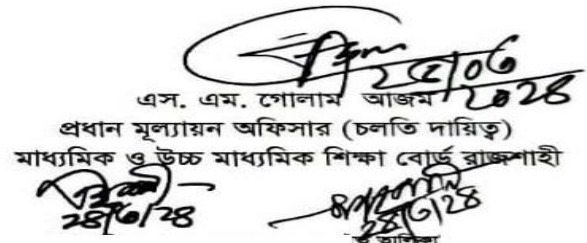 ০৬
২০২৪
এস. এম. গোলাম আজম
প্রধান মূল্যায়ন অফিসার (চলতি দায়িত্ব)
মাধ্যমিক ও উচ্চ মাধ্যমিক শিক্ষা বোর্ড রাজশাহী
২৪/৬/২৪ ২৪/৬/২৪